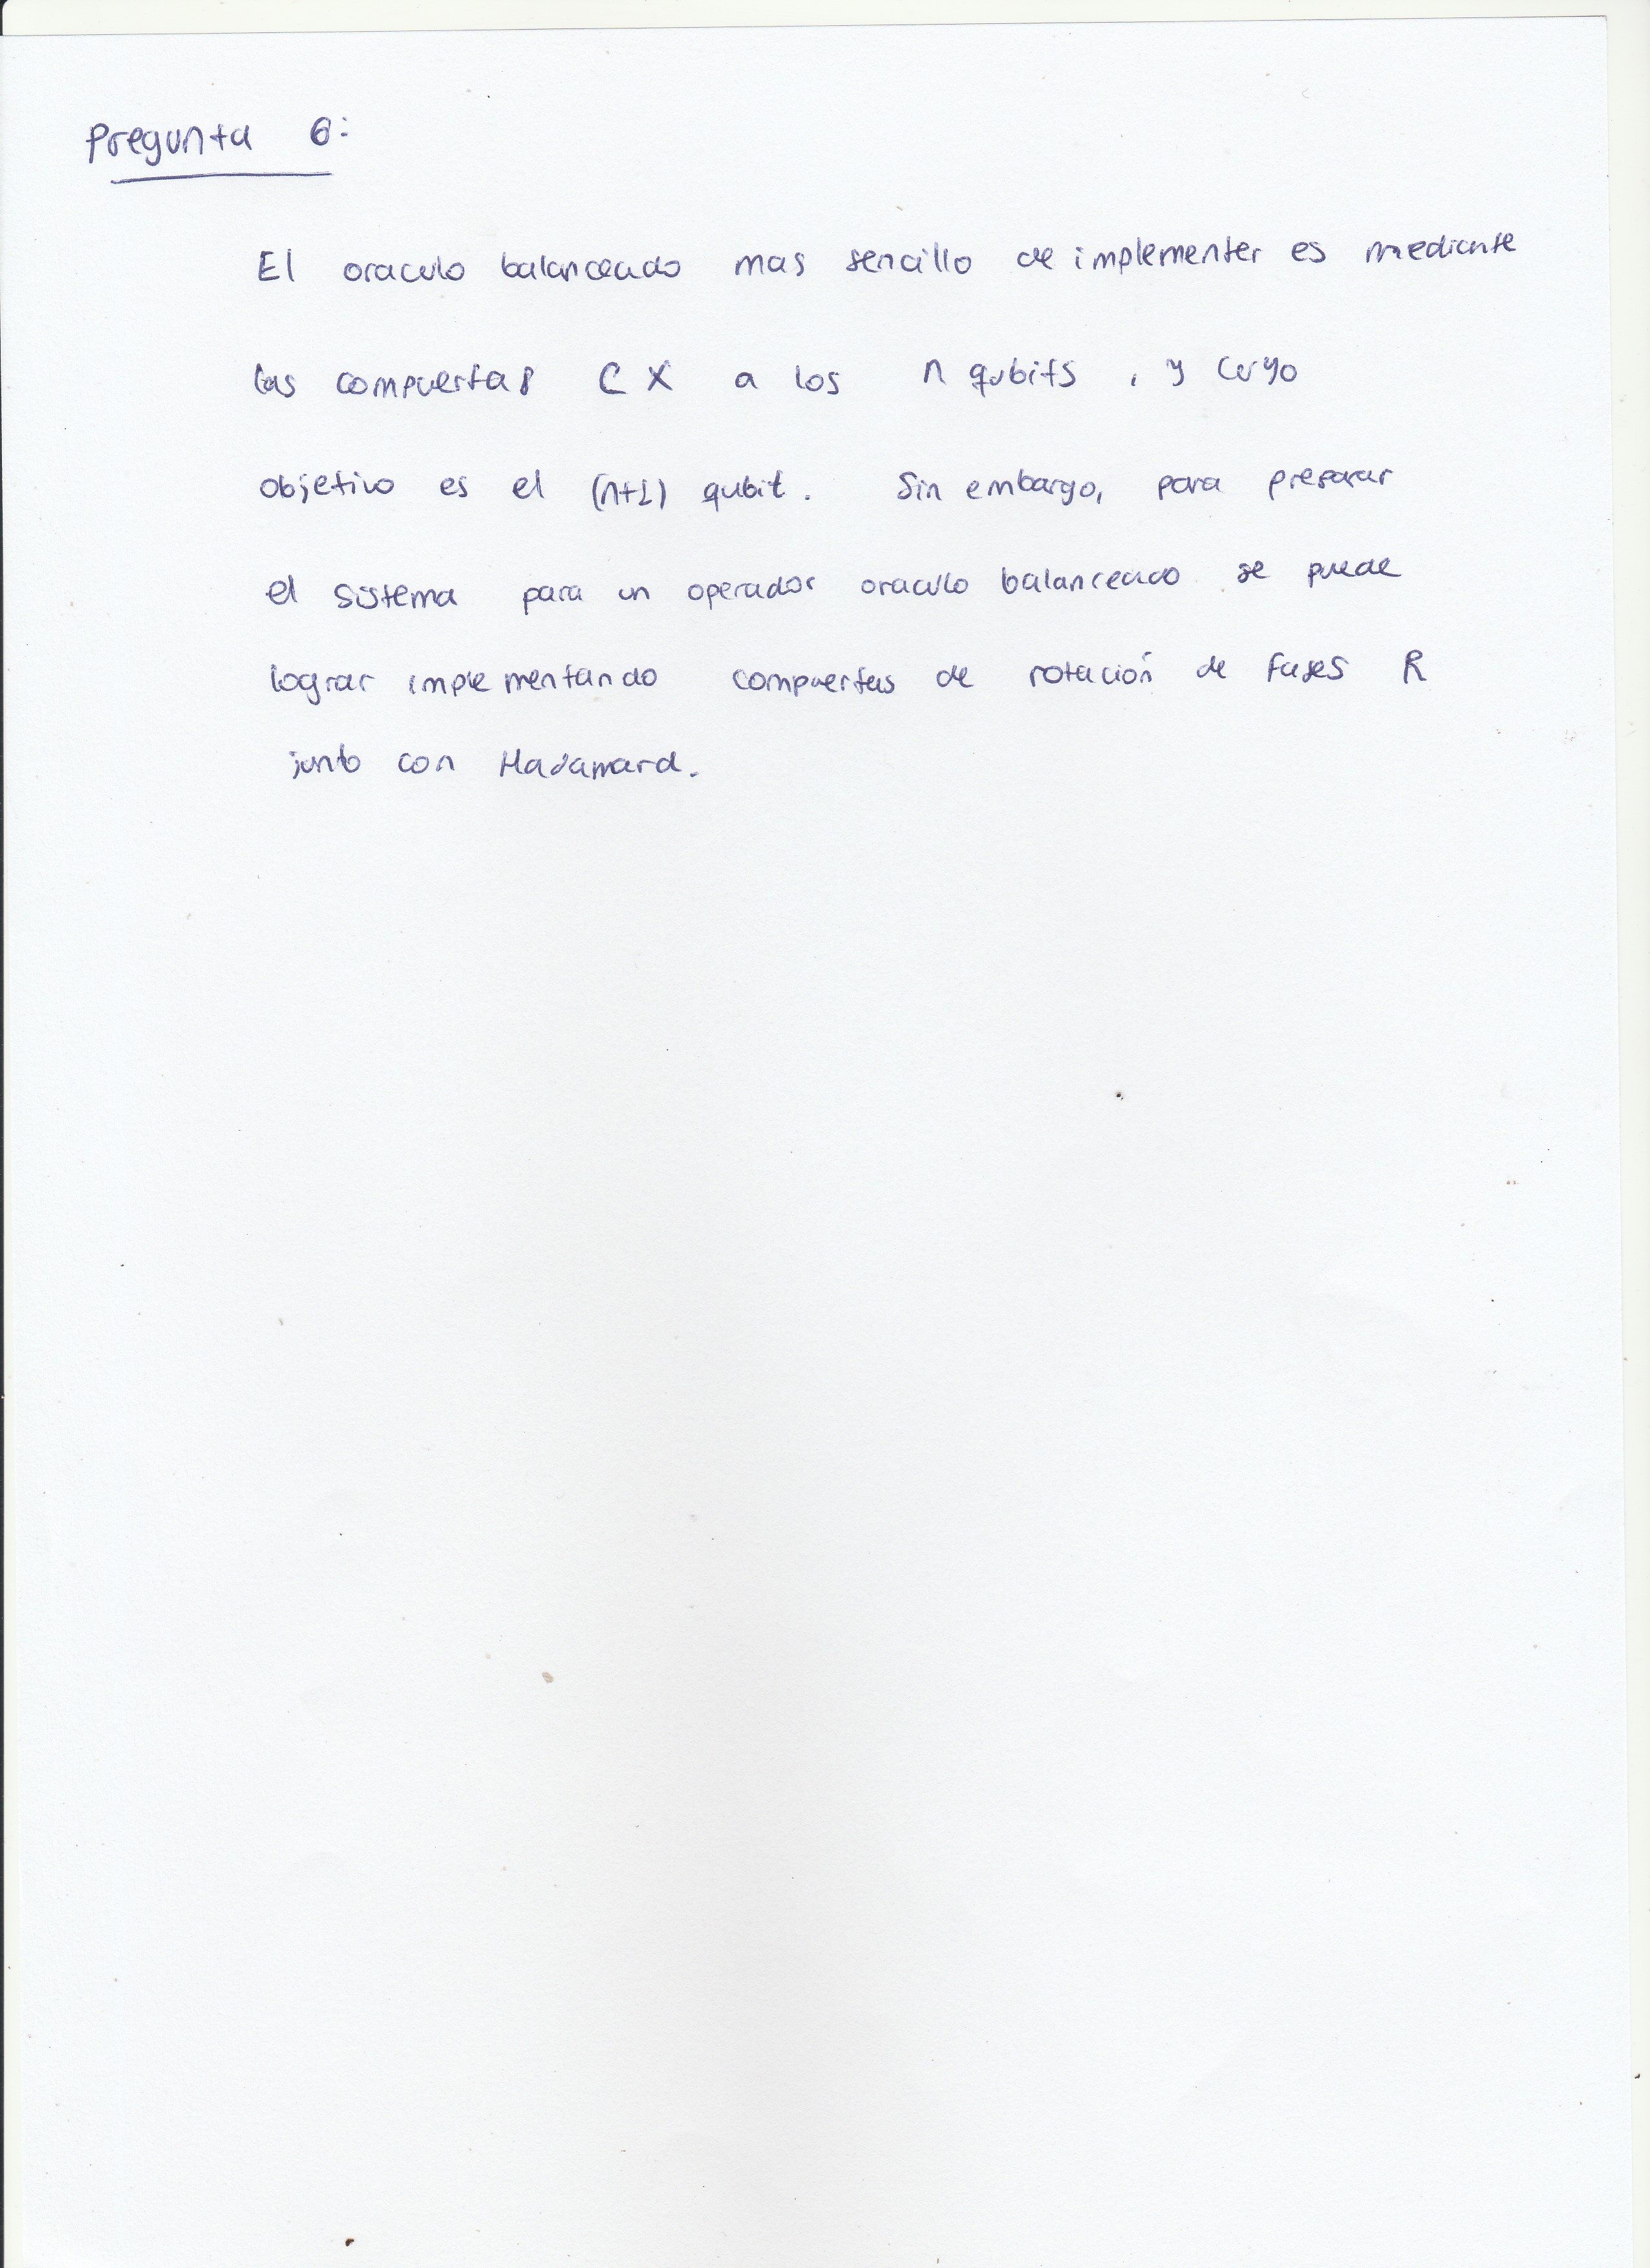 Pregunta 6:
El oraculo balanceado mas sencillo de implementer es mediante
las compuertas CX a los n qubits , y cuyo
objetivo es el (n+1) qubit. Sin embargo, para preparar
el sistema para un operador oraculo balanceado se puede
lograr implementando compuertas de rotación de fases R
junto con Hadamard.